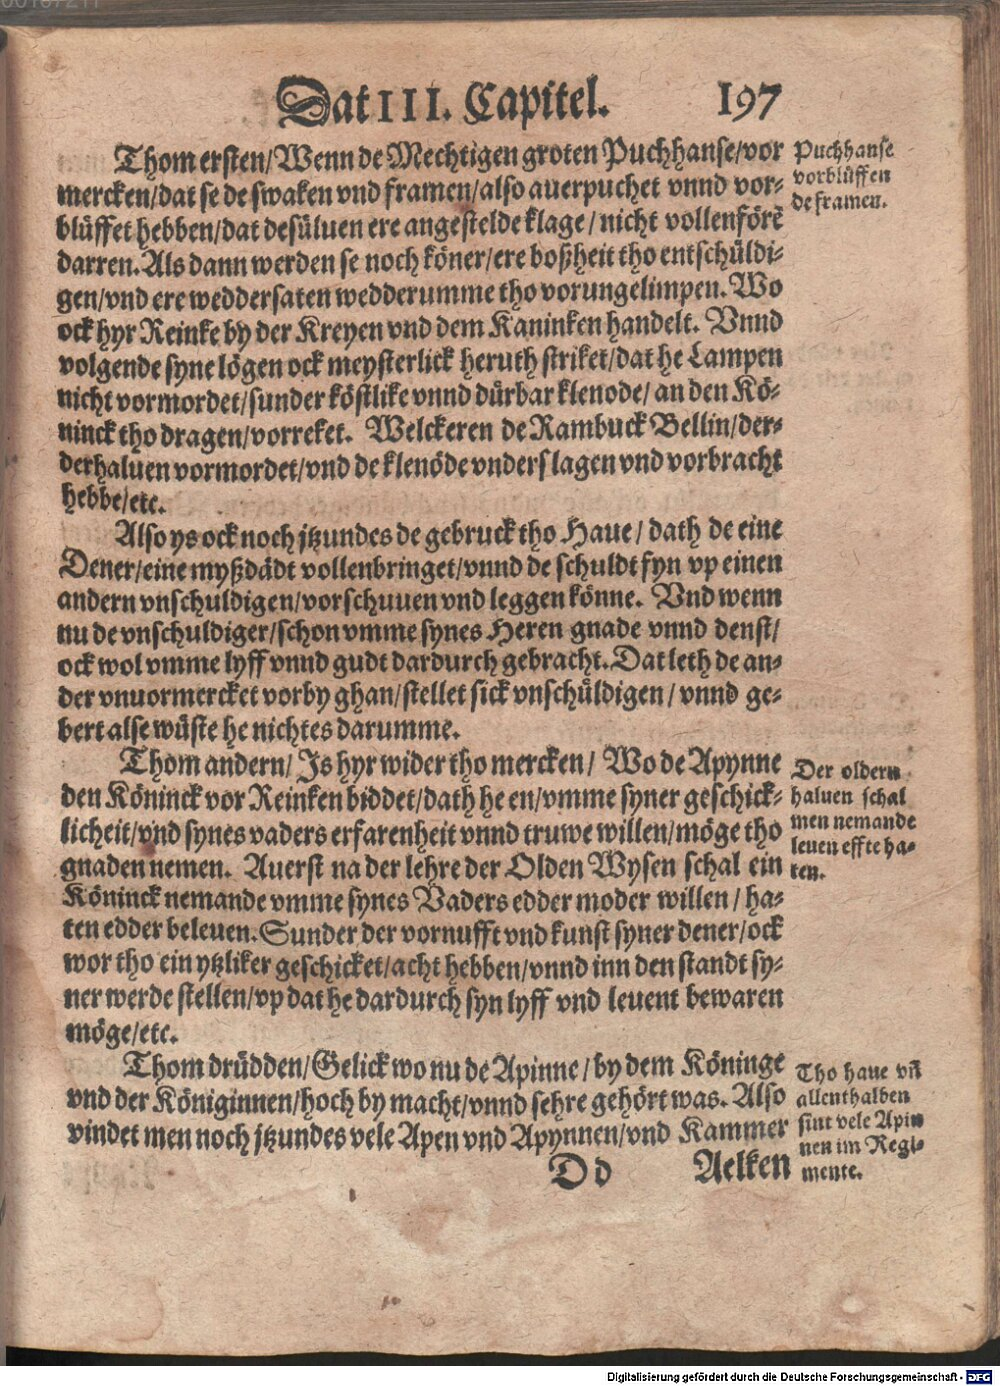 Dat III. Capitel. 197
Thom ersten/Wenn de Mechtigen groten Puchhanse/vor
mercken/dat se de swaken vnd framen/also auerpuchet vnnd vor-
blüffet hebben/dat desüluen ere angestelde klage/nicht vollenförē
darren. Als dann werden se noch köner/ere boßheit tho entschüldi-
gen/vnd ere weddersaten wedderumme tho vorungelimpen. Wo
ock hyr Reinke by der Kreyen vnd dem Kaninken handelt. Vnnd
volgende syne lögen ock meysterlick heruth striket/dat he Lampen
nicht vormordet/sunder köstlike vnnd dürbar klenode/an den Kö-
ninck tho dragen/vorreket. Welckeren de Rambuck Bellin/der-
derhaluen vormordet/vnd de klenöde vnderslagen vnd vorbracht
hebbe/etc.
Also ys ock noch jtzundes de gebruck tho Haue/dath de eine
Dener/eine myßdädt vollenbringet/vnnd de schuldt syn vp einen
andern vnschuldigen/vorschuuen vnd leggen könne. Vnd wenn
nu de vnschuldiger/schon vmme synes Heren gnade vnnd denst/
ock wol vmme lyff vnnd gudt dardurch gebracht. Dat leth de an-
der vnuormercket vorby ghan/stellet sick vnschüldigen/vnnd ge-
bert alse wüste he nichtes darumme.
Thom andern/Is hyr wider tho mercken/Wo de Apynne
den Köninck vor Reinken biddet/dath he en/vmme syner geschick-
licheit/vnd synes vaders erfarenheit vnnd truwe willen/möge tho
gnaden nemen. Auerst na der lehre der Olden Wysen schal ein
Köninck nemande vmme synes Vaders edder moder willen/ha-
ten edder beleuen. Sunder der vornufft vnd kunst syner dener/ock
wor tho ein ytzliker geschicket/acht hebben/vnnd inn den standt sy-
ner werde stellen/vp dat he dardurch syn lyff vnd leuent bewaren
möge/etc.
Thom drüdden/Gelick wo nu de Apinne/by dem Köninge
vnd der Königinnen/hoch by macht/vnnd sehre gehört was. Also
vindet men noch jtzundes vele Apen vnd Apynnen/vnd Kammer
Dd Aelken
Puchhanse
vorblüffen
de framen.
Der oldern
haluen schal
men nemande
leuen effte ha-
ten.
Tho haue vñ
allenthalben
sint vele Apin
nen im Regi-
mente.
Digitalisierung gefördert durch die Deutsche Forschungsgemeinschaft - DFG